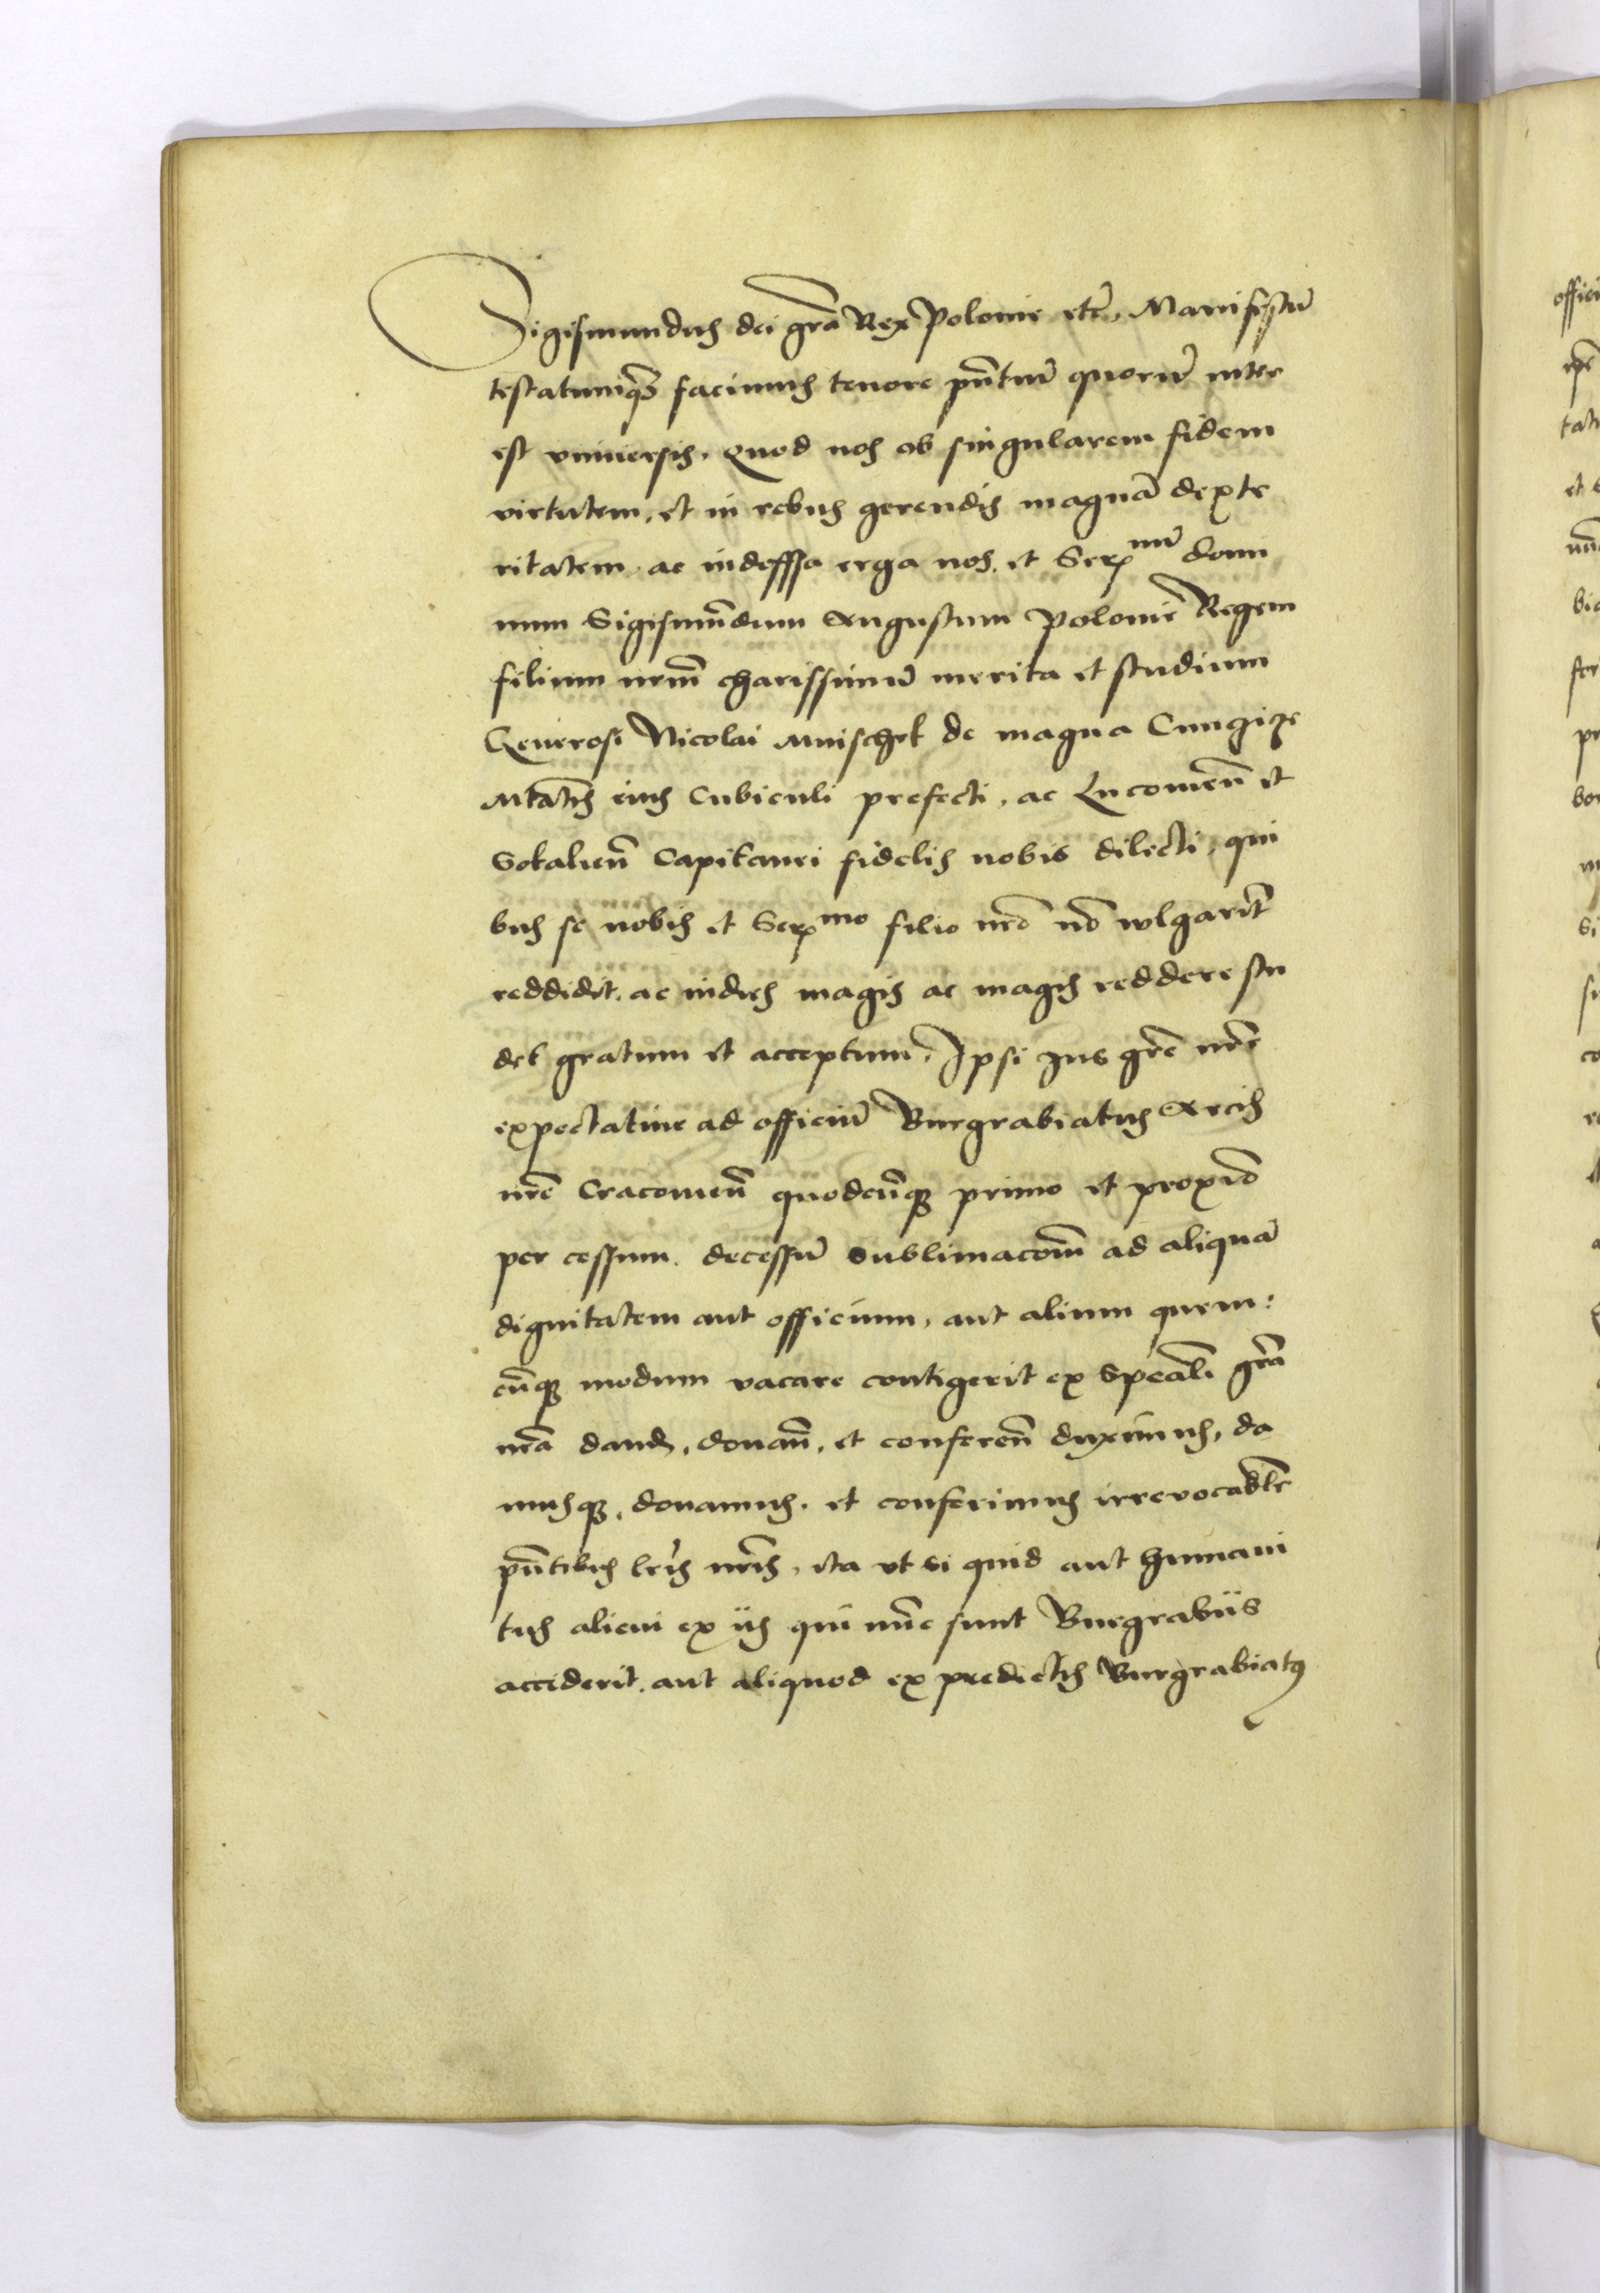 Sigismundus dei gra͞ Rex Polonie etc͞. Manifestu͞
testatumq͞ꝫ facimus tenore pn͞tiu͞ quoru͞ inter
est vniuersis. Quod nos ob singularem fidem
virtutem, et in rebus gerendis magna͞ dexte
ritatem, ac indefessa erga nos, et Serᵐᵘ͞ domi
num Sigismu͞dum Augustum Polonie Regem
filium nrm͞ charissimu͞ merita et studium
Generosi Nicolai Mnischek de magna Cunczicze
Mtat͞is eius Cubiculi prefecti, ac Lucovien͞ et
Sokalien͞ Capitanei fidelis nobis dilecti, qui
bus se nobis et Serᵐᵒ filio nro͞ no͞ wlgarit͞
reddidit, ac indies magis ac magis reddere stu
det gratum et acceptum, Ipsi Jus gre͞ nre͞
expectatiue ad officiu͞ Burgrabiatus Arcis
nre͞ Cracovien͞ quodcu͞qꝫ primo et proxi͞o
per cessum, decessu͞ sublimaco͞m ad aliqua͞
dignitatem aut officium, aut alium quem:
cu͞qꝫ modum vacare contigerit ex Speal͞i gra͞
nra͞ dand, donan͞, et conferen͞ duximus, da
musqꝫ, donamus, et conferimus irrevocabl͞r
pn͞tibus lr͞is nr͞is, ita vt si quid aut humani
tus alicui ex iis qui nu͞c sunt Burgrabiis
acciderit, aut aliquod ex predictis Burgrabiatꝰ